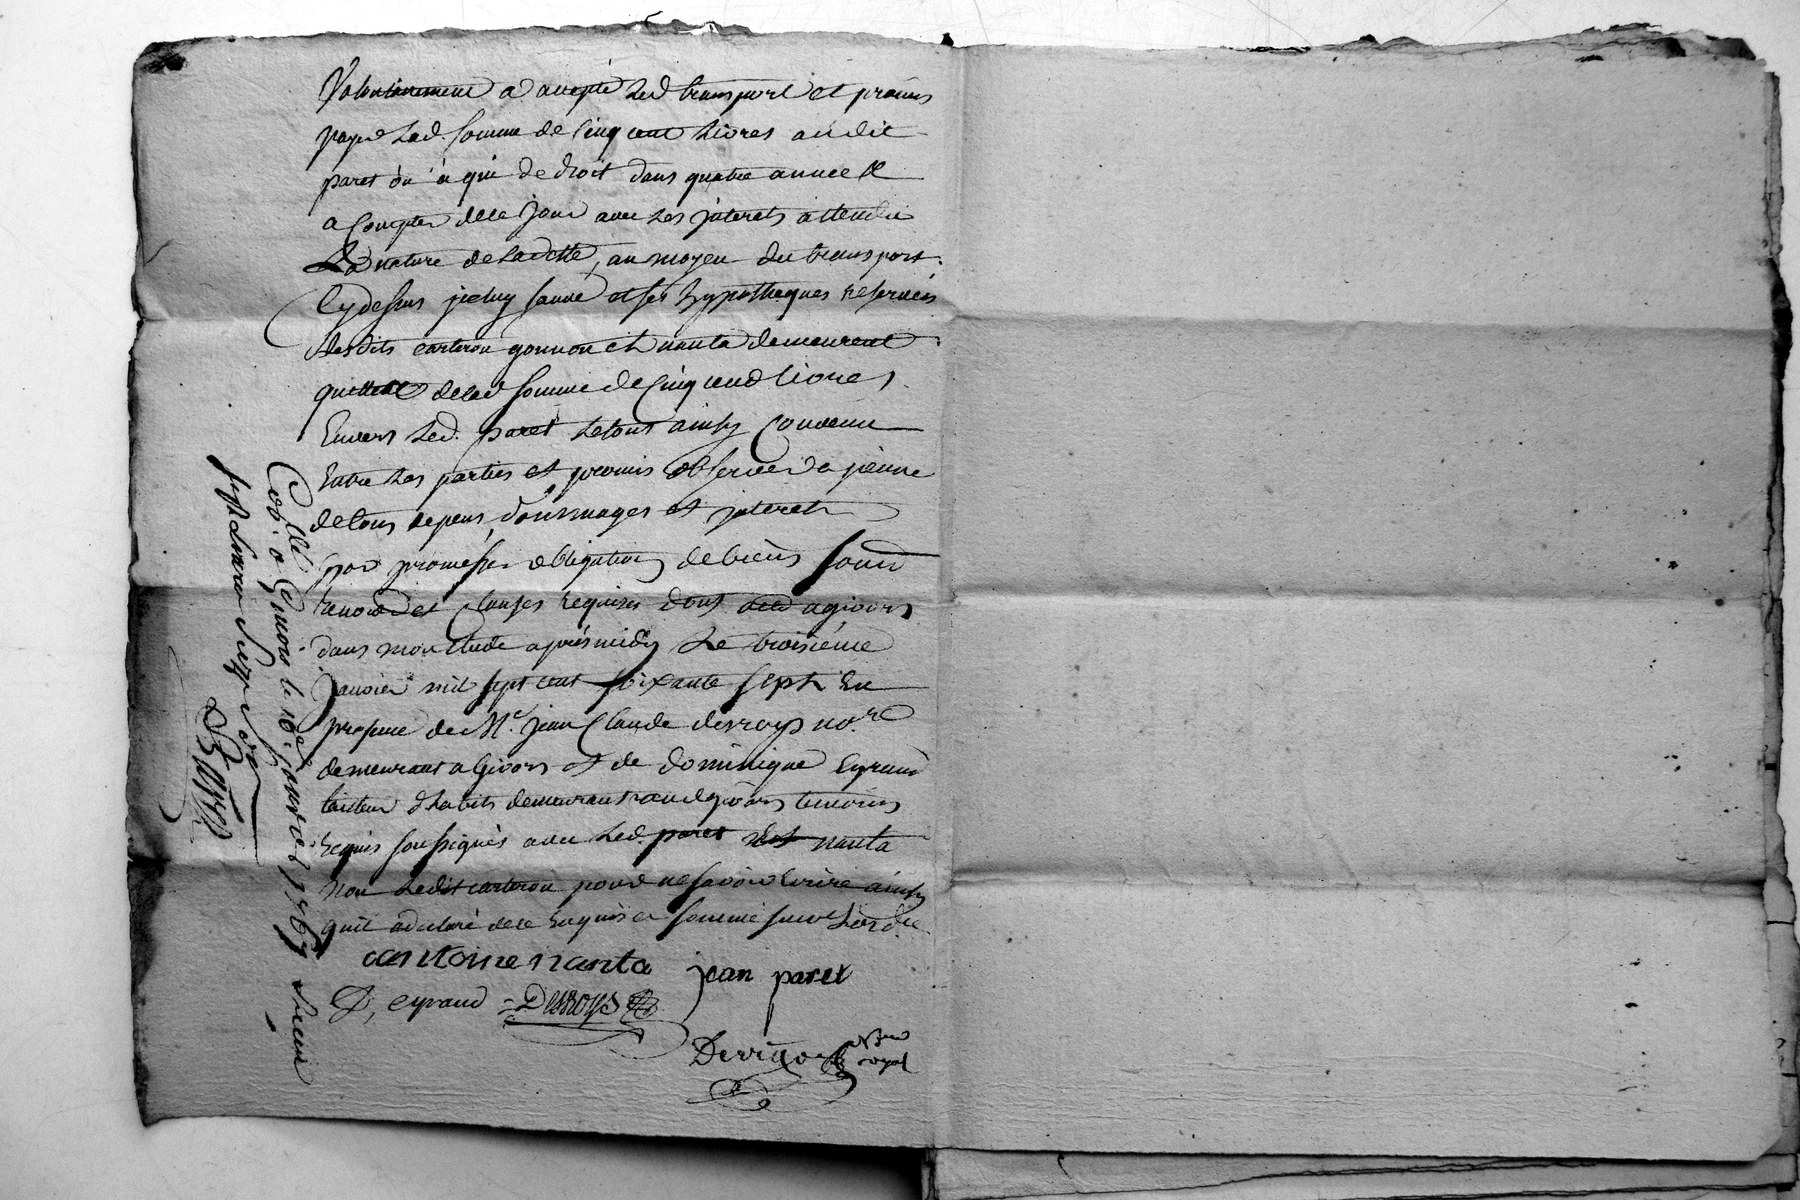 Volontairement a accepté led transport et promis
payer lad. somme de cinq cent livres audit
paret ou a qui de droit dans quatre année
a compter de ce jour avec les jnterets attendu
La nature de la dette, au moyen du transport
Cy dessus jceluy sauve et ses hypotheques reservées
lesdits carteron gonnon et nanta demeurent
quittent de lad somme de Cinq cend livres
Envers led. paret le tout ainsy convenu
Entre les parties et promis observer a peinne
de tous depens, dommages et jnterets
par promesses obligation de biens soum
renond et clauses requises dont acte a givors
dans mon étude après midy Le troisième
Janvier mil sept cent soixante sept En
presence de Me. jean Claude desroys nore
demeurant a Givors et de dominique Eyraud
tailleur d'habits demeurant aud givors temoins
Requis soussignés avec led. paret et nanta
non ledit carteron pour ne savoir Ecrire ainsy
quil a déclaré de ce Enquis et sommé suivt Lord.ce
antoine nanta jean paret
D, eyraud Desroys
Devilla nore royal
Collé a Givors le 16e janvier 1767 Receu